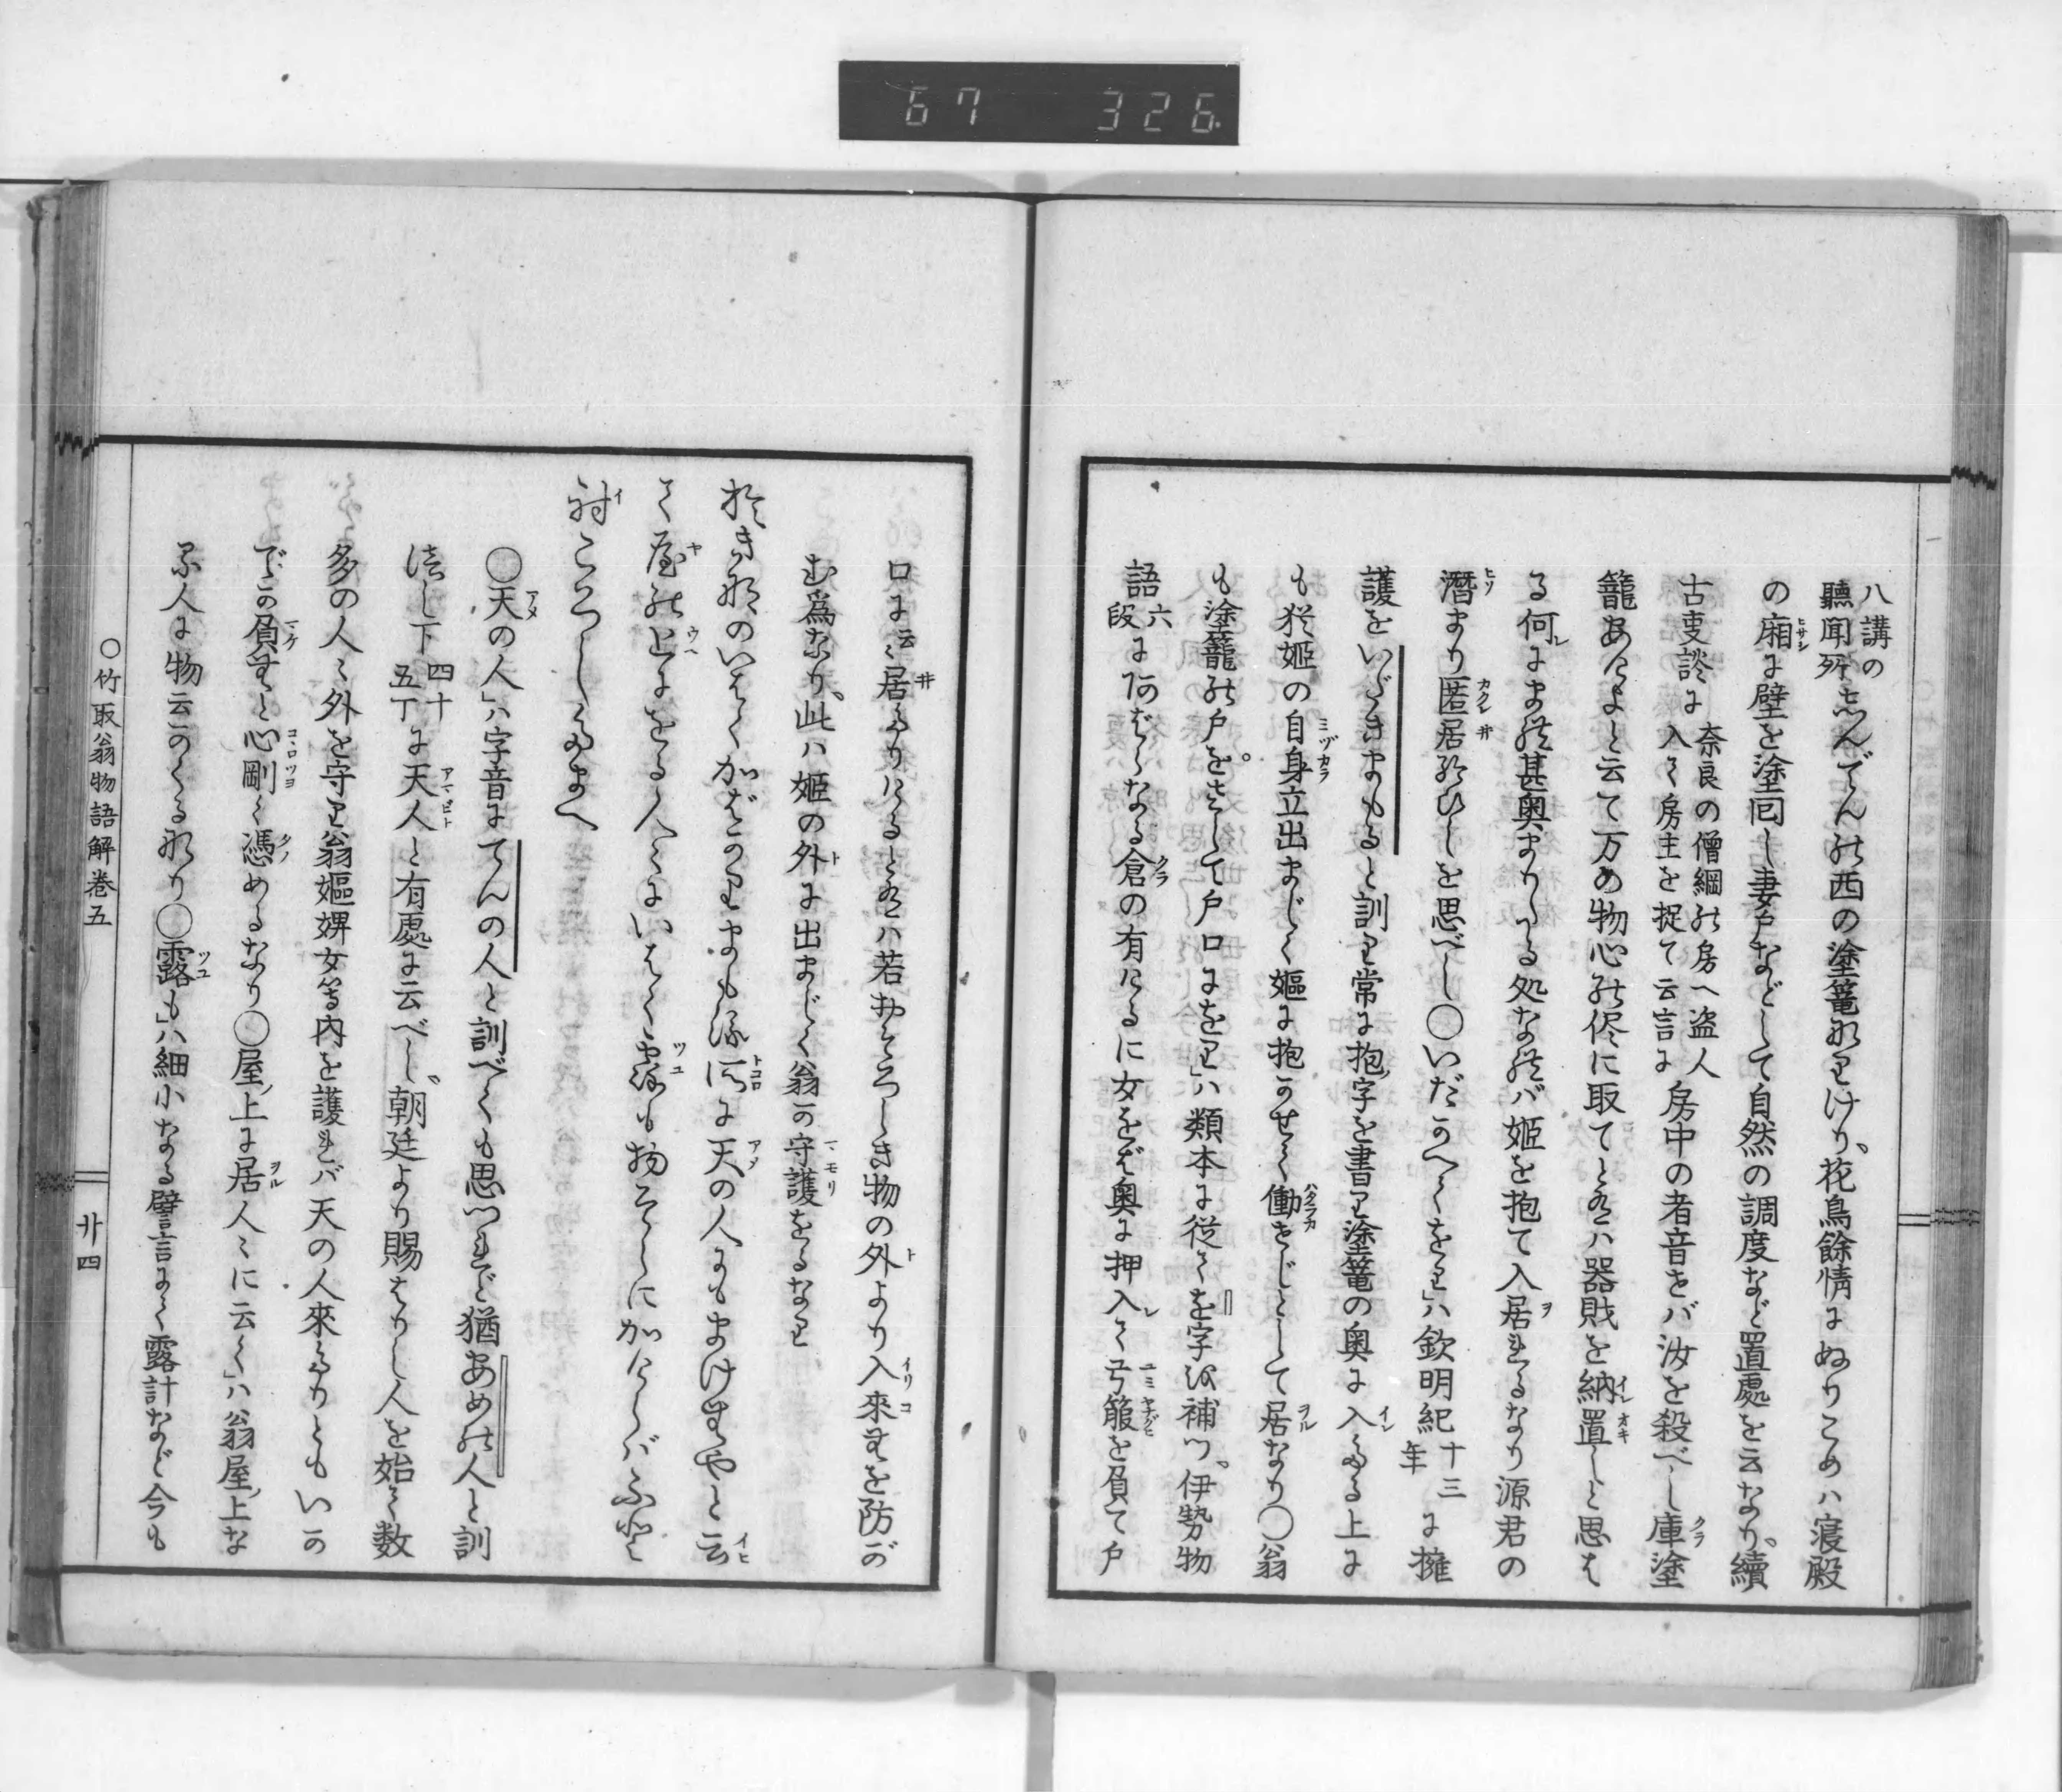 67 326
八講の
聽聞所しんでんの西の塗篭なりけり、花鳥餘情にぬりこめハ寝殿
の廂に壁を塗囘し妻戸などして自然の調度など置處を云なり、續
古叓談に奈良の僧綱の房へ盗人
入て房主を捉て云言に房中の者音せバ汝を殺べし庫塗
籠あけよと云て万の物心の侭に取てとあるハ器財を納置しと思は
る何にまれ甚奥まりたる処なれバ姫を抱て入居れるなり源君の
潜まり匿居給ひしを思べし○いだかへてをり」ハ欽明紀十三年に擁
護をいだきまもると訓り常に抱字を書り塗篭の奥に入たる上に
も猶姫の自身立出まじく嫗に抱かせて働せじとして居なり○翁
も塗籠の戸をさして戸口にをり」ハ類本に從てを字を補つ、伊勢物
語六段にあばらなる倉の有けるに女をば奥に押入て弓箙を負て戸
口に云々居たりけるとあるハ若おそろしき物の外より入來むを防が
む爲なり、此ハ姫の外に出まじく翁の守護をるなり
おきなのいはくかばかりまもる所に天の人にもまけむやと云
て屋の上にをる人々にいはく露も物そらにかけらバふと
射ころしたまへ
○天の人」ハ字音にてんの人と訓べくも思つれど猶あめの人と訓
つ下四十五丁に天人と有處に云べし、朝廷より賜はりし人を始て数
多の人々外を守り翁嫗婢女等内を護れバ天の人來たりともいか
でか負むと心剛く憑めるなり○屋ノ上に居人々に云く」ハ翁屋ノ上な
る人に物云かくるなり○露も」ハ細小なる譬言にて露計など今も
○竹取翁物語解巻五
廿四